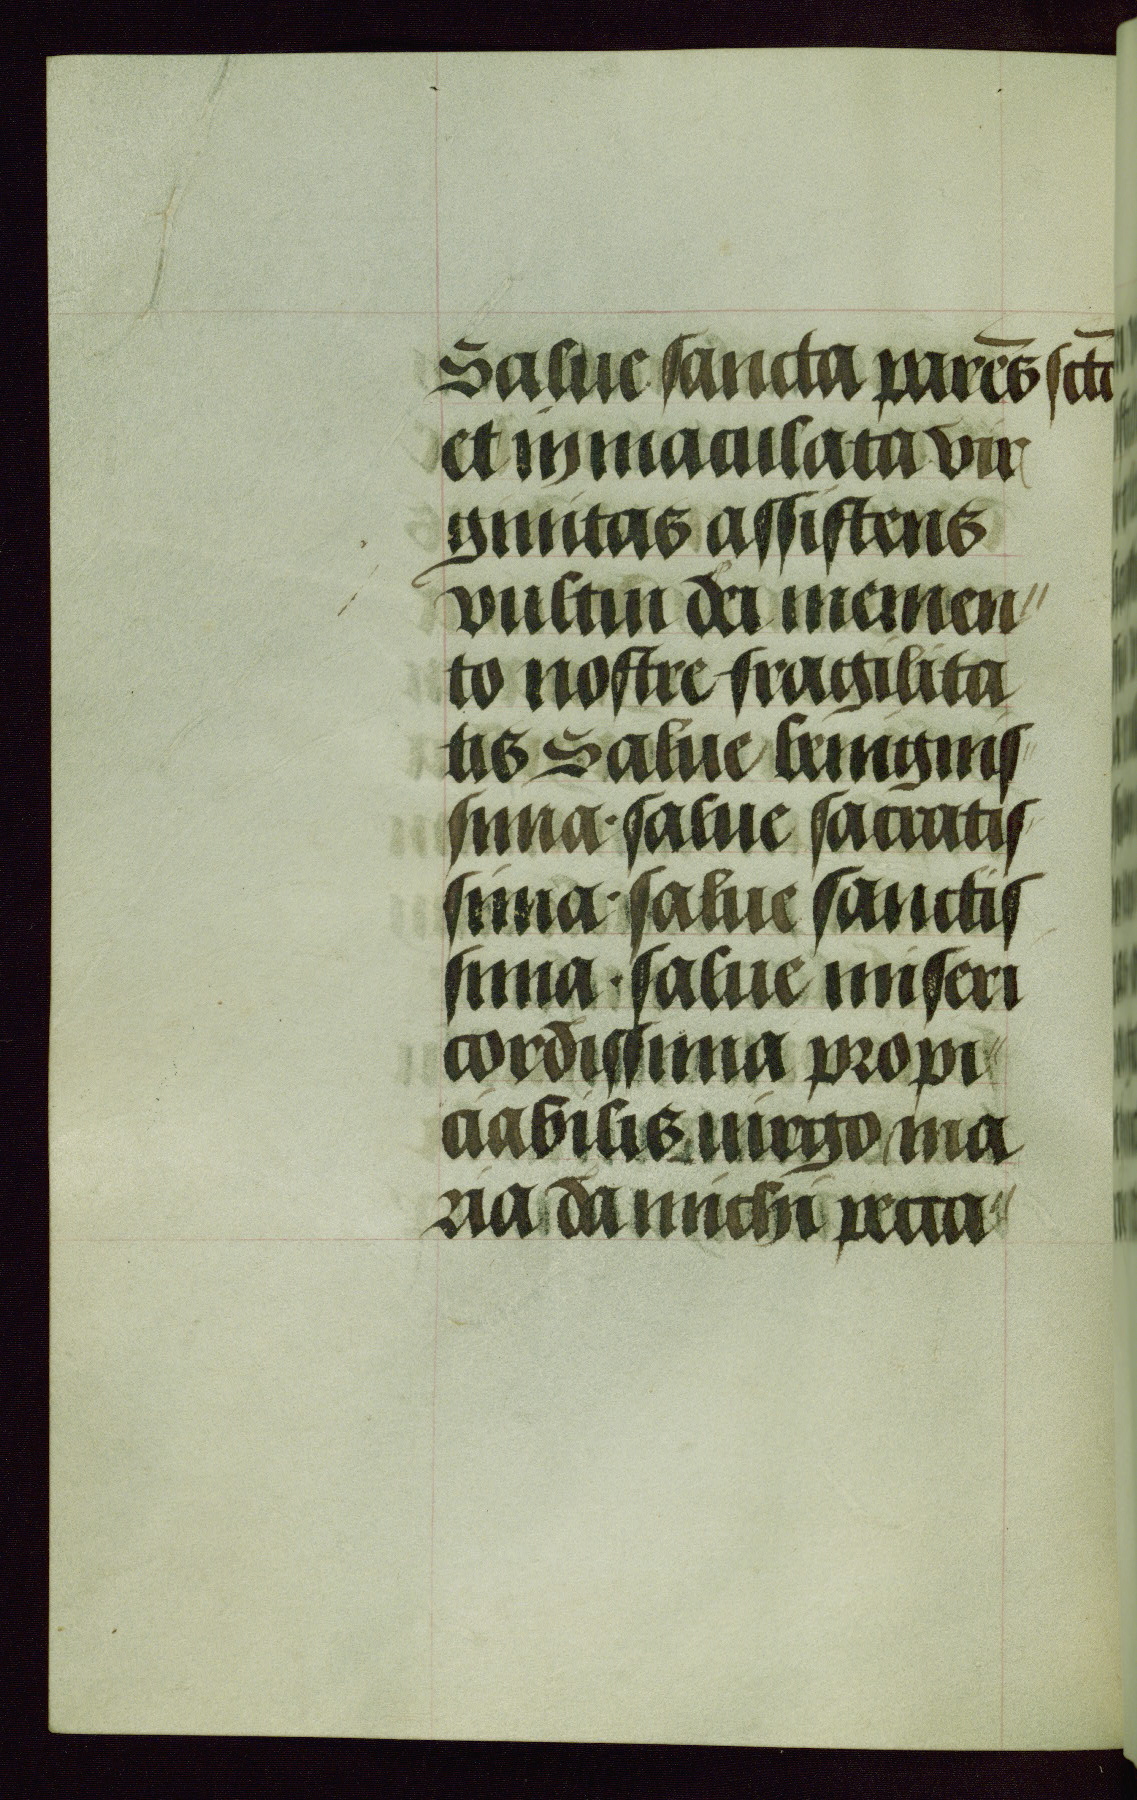 Salue sancta parēs sctā
et inmaculata vir
ginitas assistens
vultui dei memen
to nostre fragilita
tis Salue benignis
sima · salue sacratis
sima · salue sanctis
sima · salue miseri
cordissima propi
ciabilis uirgo ma
ria da michi pecca